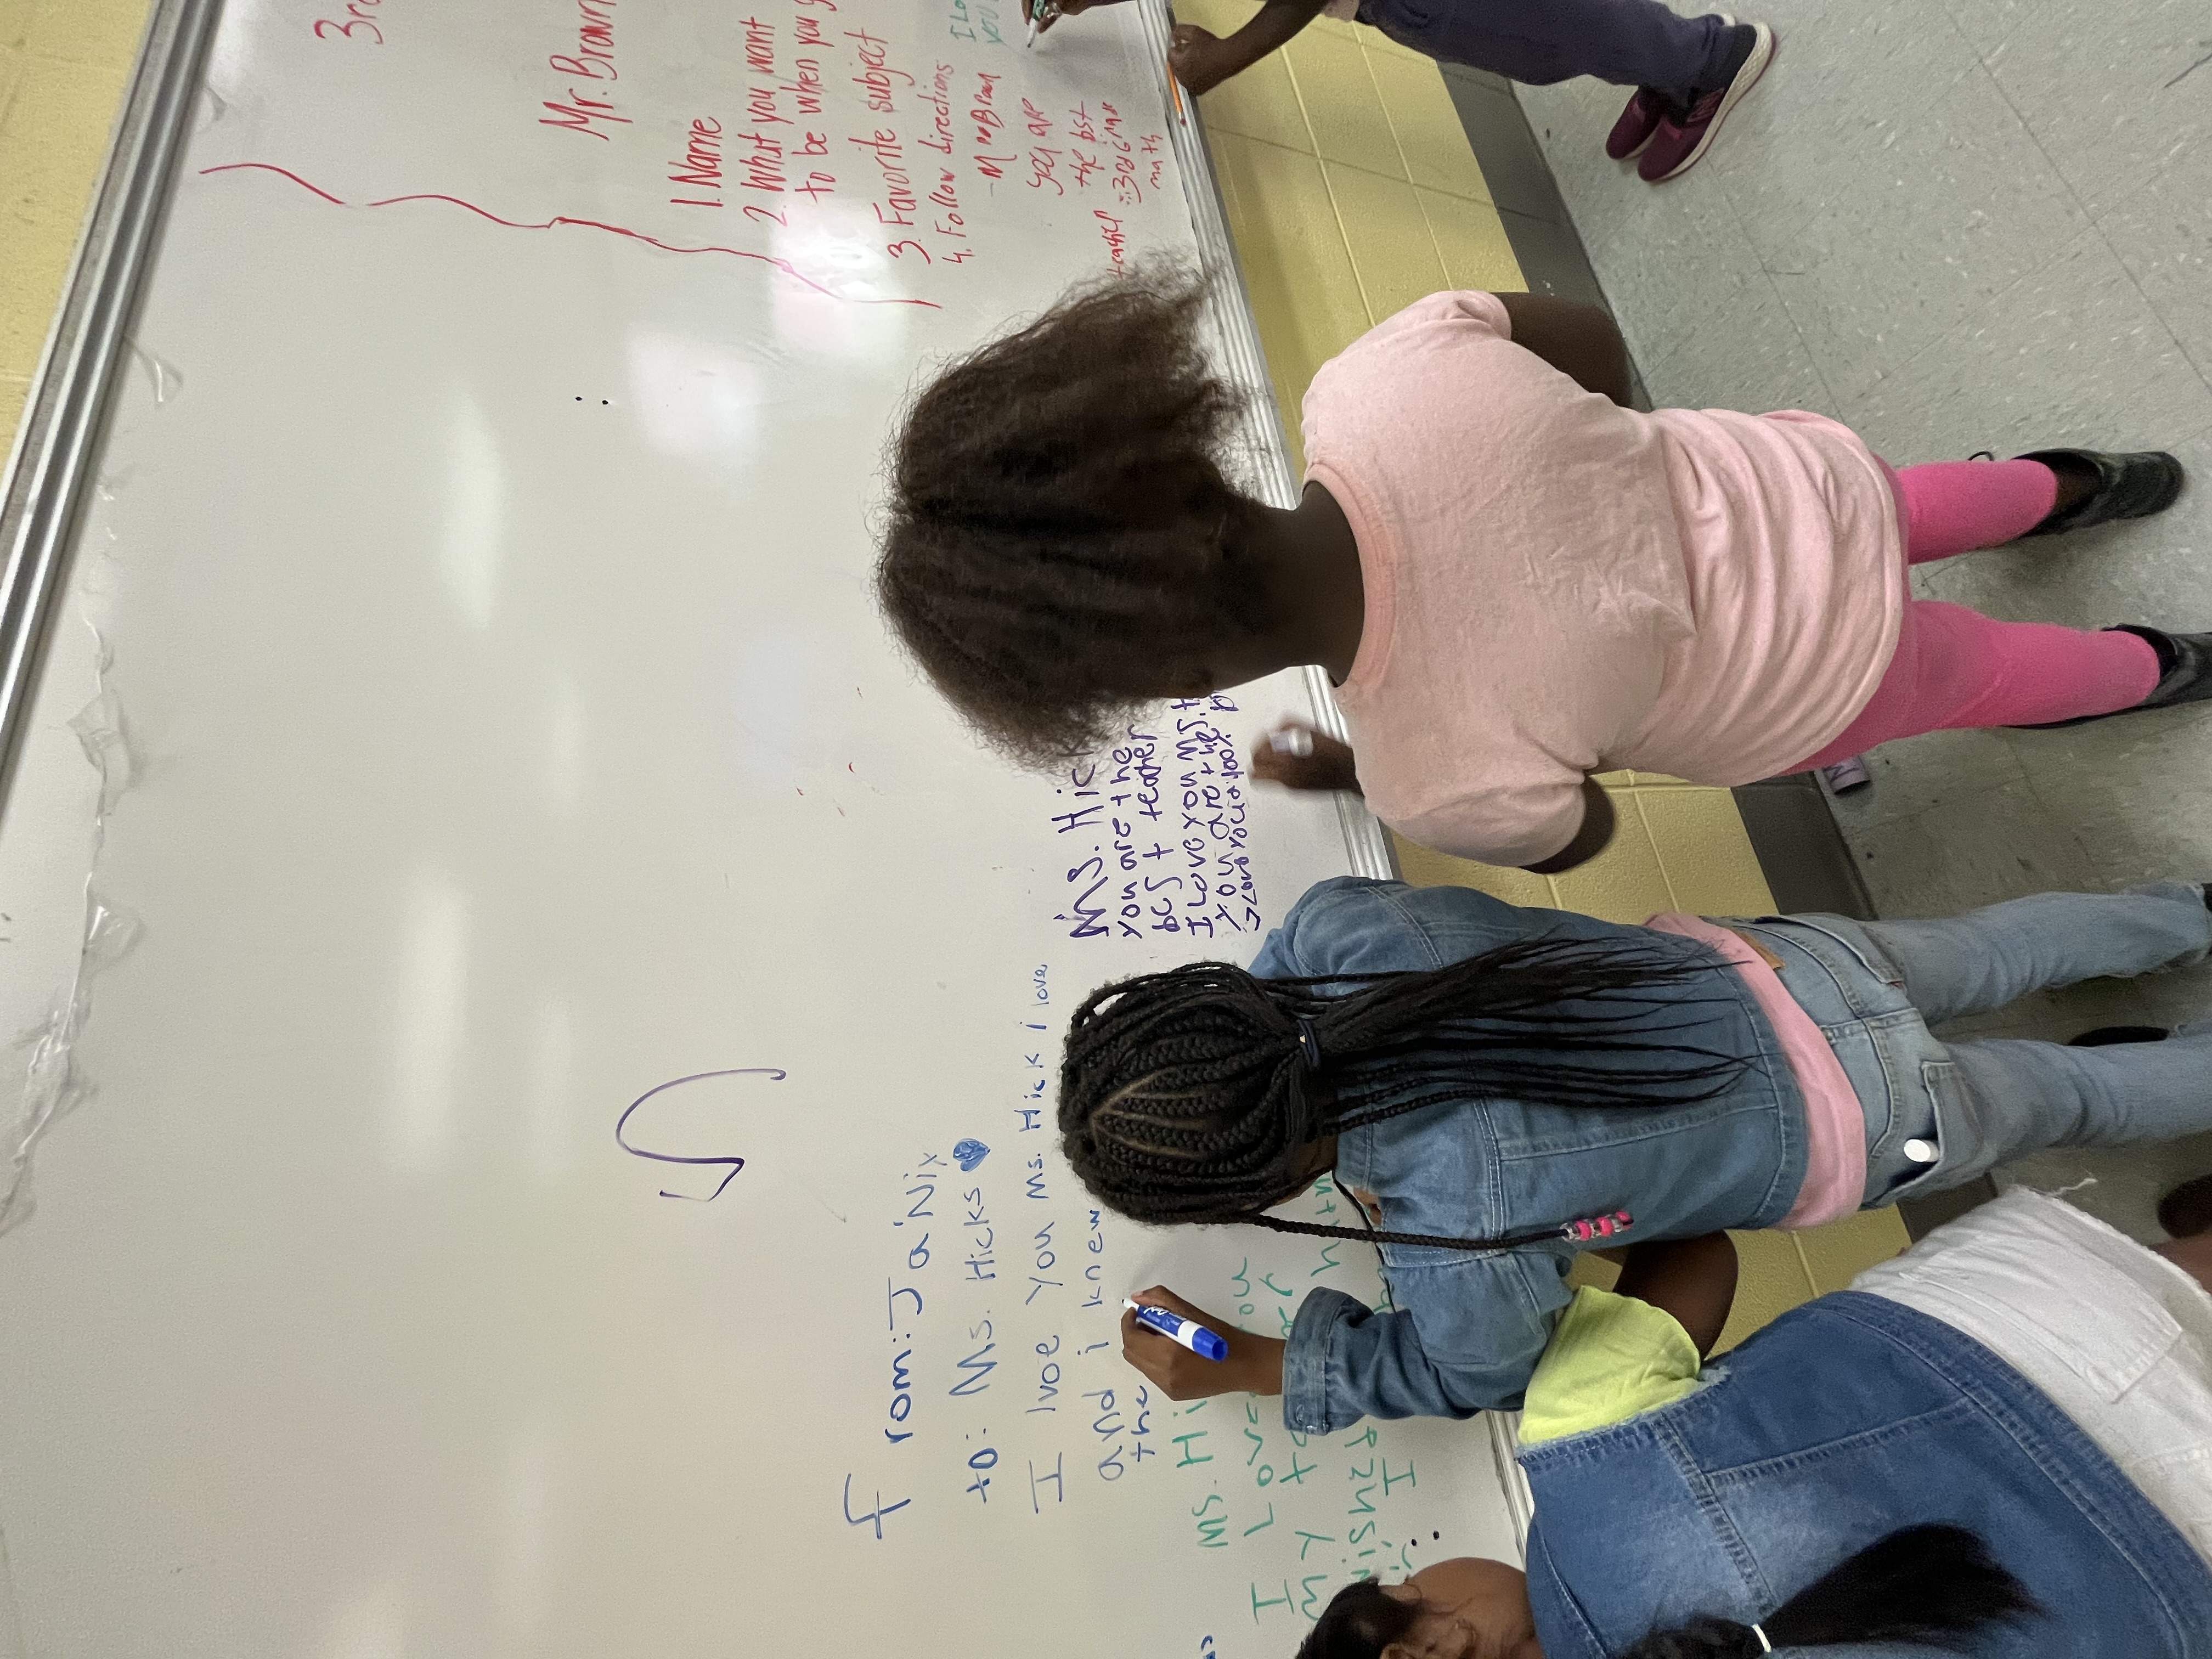 From: Ja'Nix
to: Ms. Hicks
I lvoe You Ms. Hick i love
and i knew
the
Ms. Hi
I Love you
my
wished
I
Ms. Hic
you are the
best teacher
I Love you Ms.
You are the
I Love You 100%
3r
Mr. Brown
1. Name
2. What you want
to be when you g
3. Favorite subject
4. Follow directions
you are
the bst
teacher 3rd Grade
math
I Lo
you